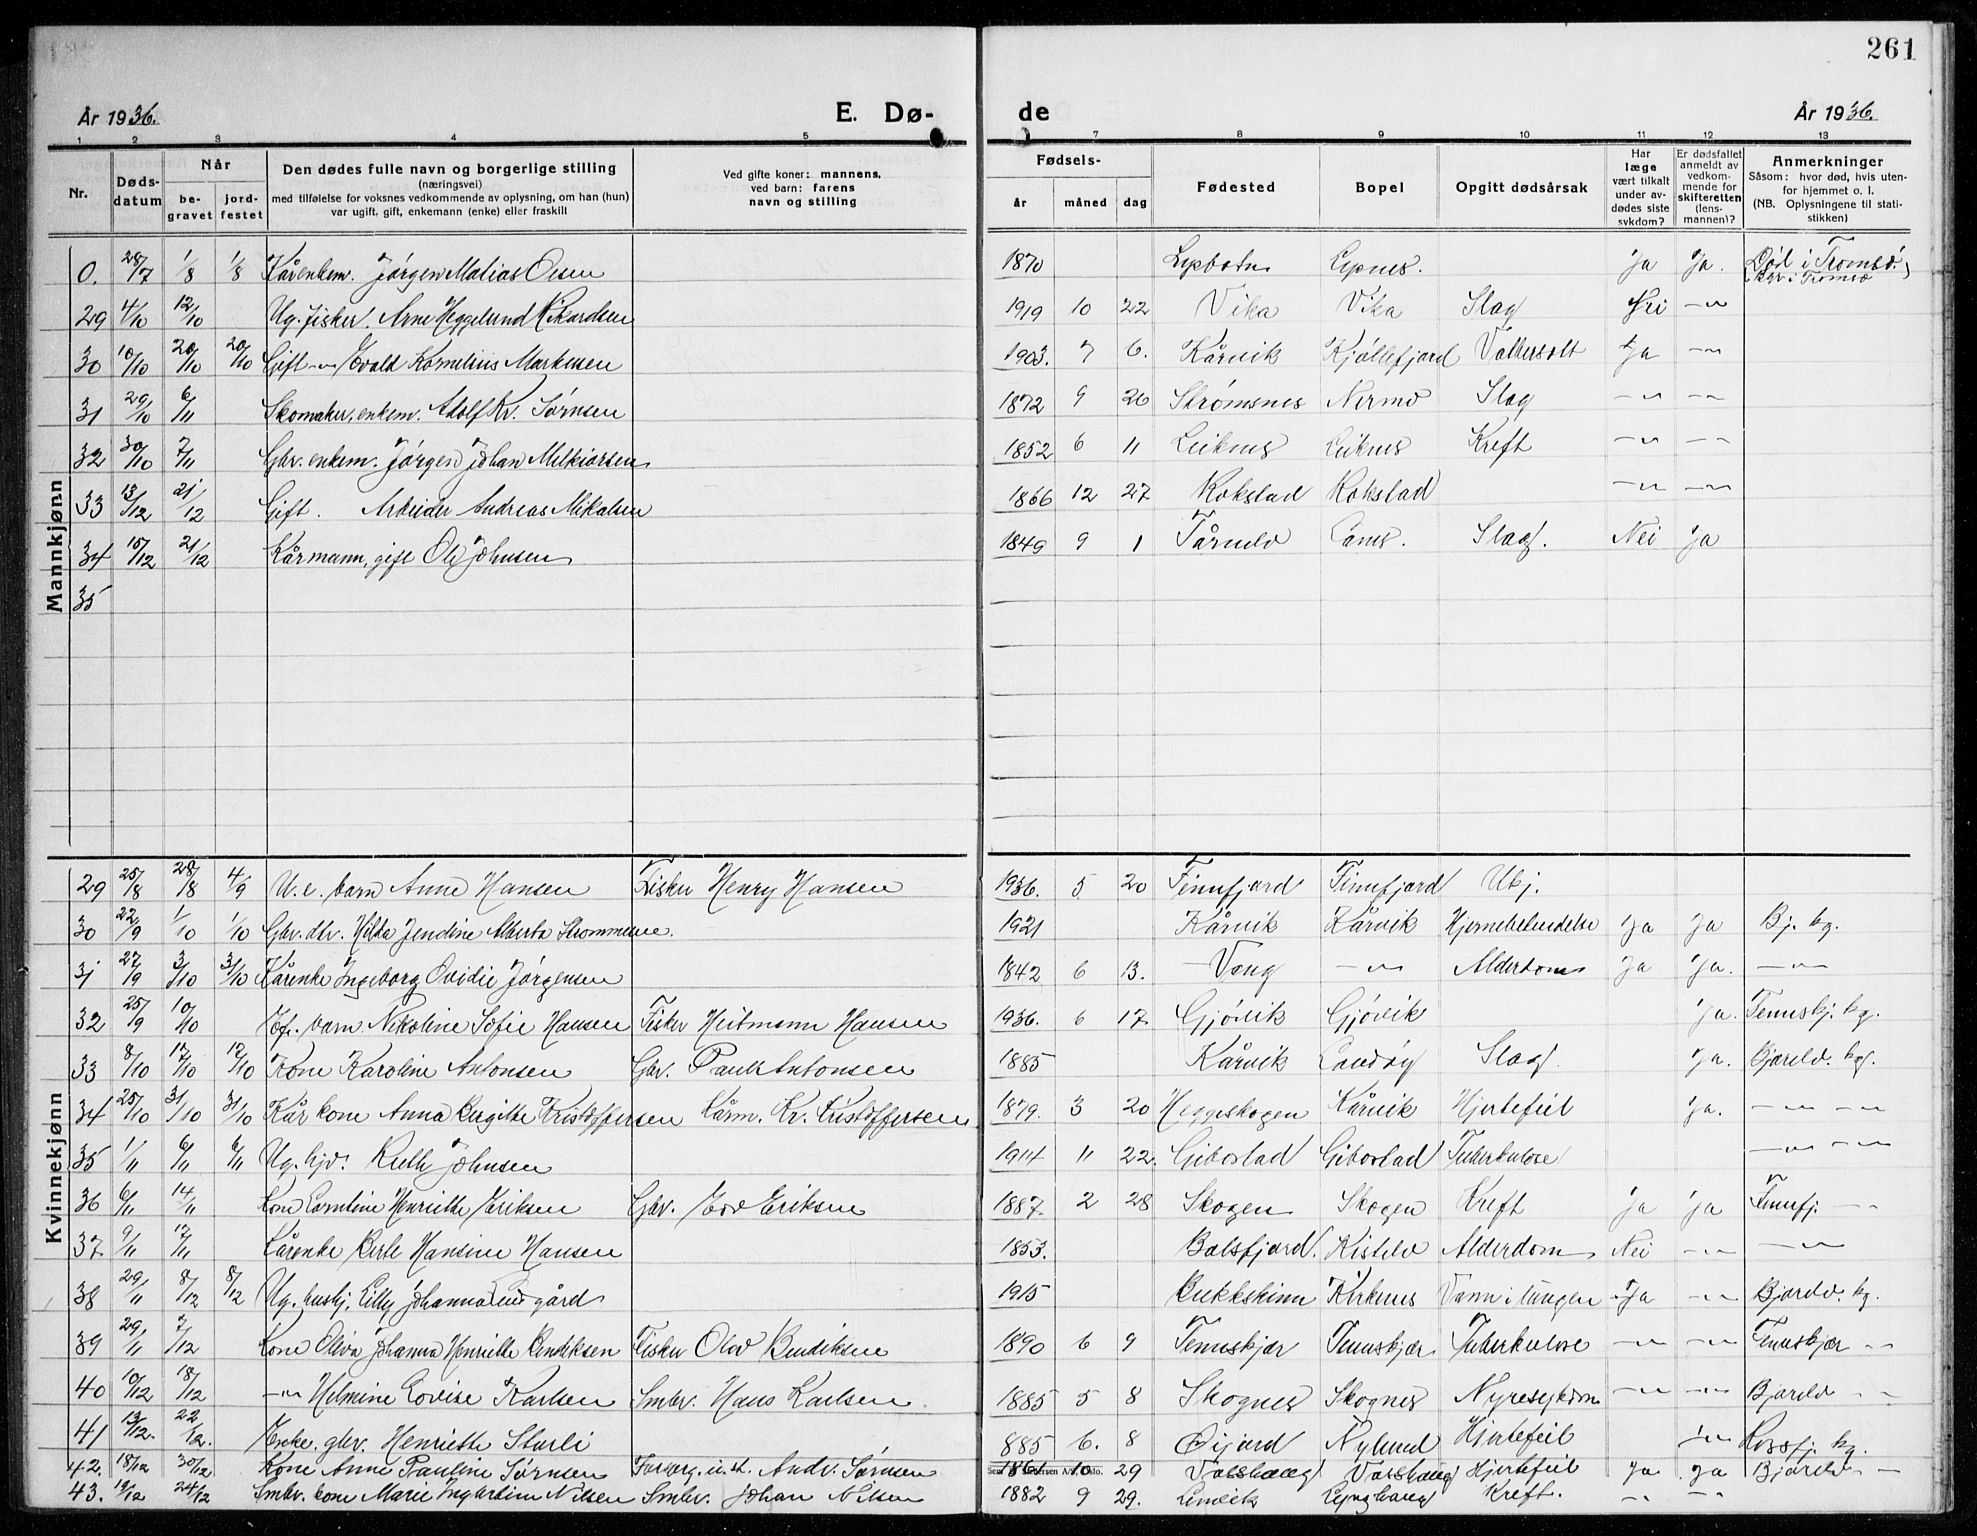 261
År 1936. E. Dø- de År 1936.
1 2 3 4 5 7 8 9 10 11 12 13
Nr. Døds-datum Når be-gravet jord-festet Den dødes fulle navn og borgerlige stilling (næringsvei) med tilføielse for voksnes vedkommende av oplysning, om han (hun) var ugift, gift, enkemann (enke) eller fraskilt Ved gifte koner: mannens, ved barn: farens navn og stilling Fødsels- år måned dag Fødested Bopel Opgitt dødsårsak Har læge vært tilkalt under av-dødes siste sykdom? Er dødsfallet anmeldt av vedkom-mende for skifteretten (lens-mannen)? Anmerkninger Såsom: hvor død, hvis uten-for hjemmet o. l. (NB. Oplysningene til stati-stikken)
Mannkjønn
0. 28/7 1/8 1/8 Kårenkem. Jørgen Matias Olsen 1870 Ja Ja. Død i Tromsø. Bgr i Tromsø
29 4/10 12/10 Ug. fisker. Arne Heggelund Rikardsen 1919 10 22 Vika Vika Slag Nei -"-
30 10/10 20/10 20/10 Gift -"- Evald Kornelius Markusen 1903. 7 6. Kårvik Kjøllefjord Ja -"-
31 29/10 6/11 Skomaker, enkem. Adolf Kr. Sørnsen 1872 9 26 Strømsnes Nermo Slag -"- -"-
32 30/10 7/11 Gbr. enkem. Jørgen Johan Melkiorsen 1852 6 11 Leiknes Leiknes Kreft -"- -"-
33 13/12 21/12 Gift. Arbeider Andreas Mikalsen 1866 12 27 Rokstad Rokstad -"- -"-
34 15/12 21/12 Kårmann, gift Ole Johnsen 1849 9 1 Tårnelv Slag. Nei Ja
35
Kvinnekjønn
29 25/8 28/8 4/9 U. e. barn Anne Hansen Fisker Henry Hansen 1936. 5 20 Finnfjord Finnfjord Ubj.
30 22/9 1/10 1/10 Gbr. dtr. Hilda Jendine Alberta Strømmesne. 1921 Kårvik Kårvik Hjernebetendelse Ja Ja Bj. kg.
31 27/9 3/10 3/10 Kårenke Ingeborg Ovidie Jørgensen 1842 6 13. Vang -"- Alderdom Ja Ja. -"-
32 25/9 10/10 barn Nikoline Sofie Hansen Fisker Heitmann Hansen 1936. 6 17 Gjøvik Gjøvik Ja. Tennskj. kg.
33 8/10 17/10 17/10 Kone Karoline Antonsen Gbr. Paul Antonsen 1885 Kårvik Slag Ja. Bjorelv. kg.
34 25/10 31/10 31/10 Kårkone Anna Bergitte Kristoffersen Kårm. Kr. Kristoffersen 1879. 3 20 Heggeskogen Kårvik Hjertefeil Ja. -"- -"-
35 1/11 6/11 6/11 Ug. hjv. Ruth Johnsen 1914 11 22. Gibostad Gibostad Tuberkulose -"- -"-
36 6/11 14/11 Kone Henriette Eriksen Gbr. Edv Eriksen 1887. 2 28 Skogen Skogen Kreft Ja Ja Finnfj. -"-
37 9/11 17/11 Kårenke Berle Hansine Hansen 1853. Balsfjord. Kistelv Alderdom Nei -"- -"-
38 29/11 8/12 8/12 Ug. hushj. Lilly Johanna Lundgård 1915 Bukkskinn Kirkenes Vann i lungen Ja -"- Bjorelv. kg.
39 29/11 7/12 Kone Oliva Johanna Henriette Bendiksen Fisker Olav Bendiksen 1890 6 9 Tennskjær Tennskjær Tuberkulose -"- -"- Tennskjær -"-
40 10/12 18/12 -"- Helmine Lovise Karlsen Smbr. Hans Karlsen 1885 5 8 Skognes Skognes Nyresykdom -"- -"- Bjorelv -"-
41 13/12. 22/12. Enke. gbr. Henriette Storli 885 6. 8 Øijord Nylund Hjertefeil -"- Rossfj. kg.
42. 18/12 30/12 Kone Anne Pauline Sørnsen Andr. Sørnsen 1861 10 29 Hjertefeil Ja Ja Bjorelv -"-
43. 19/12 24/12 Smbr. kone Marie Nilsen Smbr. Johan Nilsen 1882 9 29. Kreft. -"- -"-